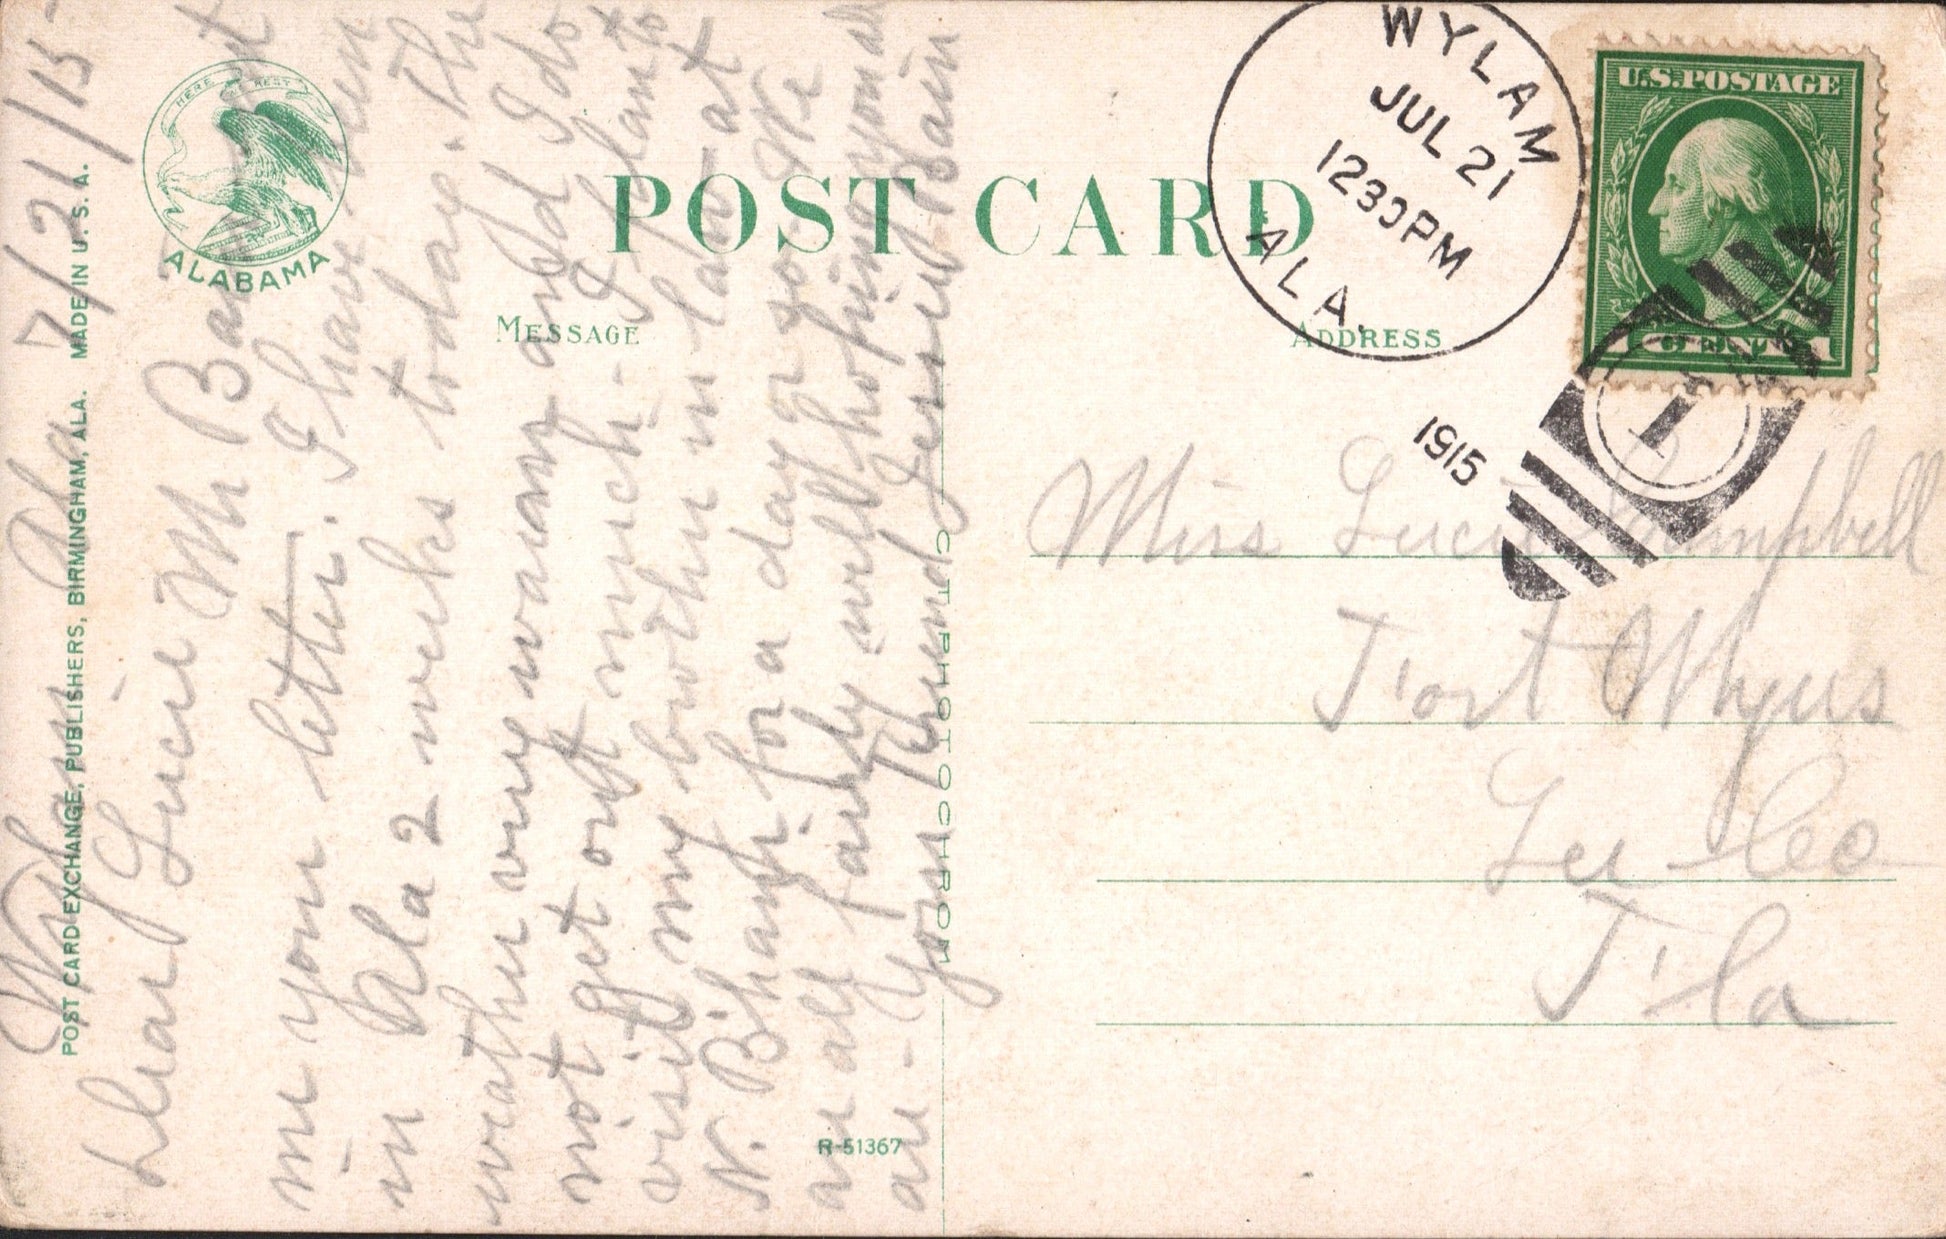 Wylam Ala 7/21/15
Dear Lucie Mr Bain sent
me your letter. I have been
in Ala 2 weeks today. The
weather very warm and I do
not get out much - I plan to
visit my brother in law - at
N. B'ham for a day or so We
are all fairly well hoping you all
are - Your Friend Jennie Bain
POST CARD EXCHANGE, PUBLISHERS, BIRMINGHAM, ALA. MADE IN U. S. A.
HERE WE REST
ALABAMA
POST CARD
MESSAGE
ADDRESS
R-51367
OCTOPHOTOCHROM
WYLAM
JUL 21
1230PM
ALA.
1915
1
U.S.POSTAGE
1 CENT 1
Miss Lucie Campbell
Fort Myers
Lee Co
Fla